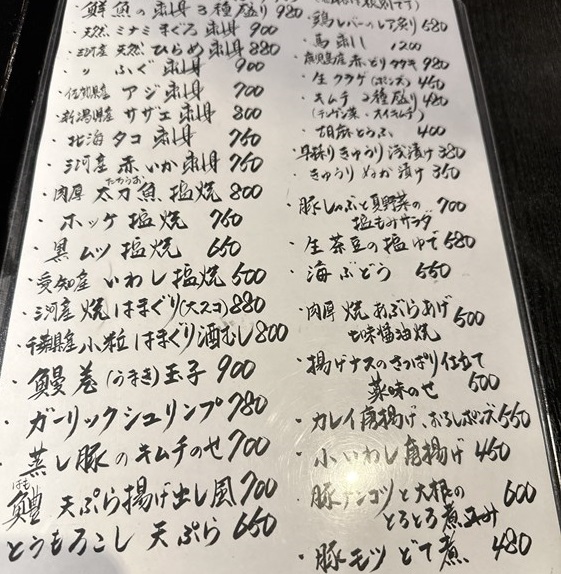 鮮魚の刺身3種盛り 980
・天然ミナミまぐろ刺身 900
・三河産 天然ひらめ刺身 880
・〃 ふぐ刺身 900
・佐賀県産 アジ刺身 700
・新潟県産 サザエ刺身 800
・北海タコ刺身 750
・三河産 赤いか刺身 750
・肉厚 太刀魚 塩焼 800
たちうお
・ホッケ塩焼 750
・黒ムツ塩焼 650
・愛知産 いわし塩焼 500
・三河産 焼はまぐり(大2コ) 880
・千葉県産 小粒はまぐり酒むし 800
・鰻巻(うまき)玉子 900
・ガーリックシュリンプ 780
・蒸し豚のキムチのせ 700
はも
鱧 天ぷら揚げ出し風 700
とうもろこし天ぷら 650
・鶏レバーのレア炙り 580
・馬刺し 1200
・鹿児島産 赤とりタタキ 980
・生クラゲ(ポンズ) 450
・キムチ 2種盛り 480
(チンゲン菜・スイキムチ)
・胡麻とうふ 400
きゅうり浅漬け 380
・きゅうりぬか漬け 350
・豚しゃぶと夏野菜の
塩もみサラダ 700
・生茶豆の塩ゆで 580
・海ぶどう 550
・肉厚 焼あぶらあげ
七味醤油焼 500
・揚げナスのさっぱり仕立て
薬味のせ 500
・カレイ唐揚げ、おろしポンズ 550
・小いわし唐揚げ 450
・豚ナンコツと大根の
とろとろ煮込み 600
・豚モツ どて煮 480